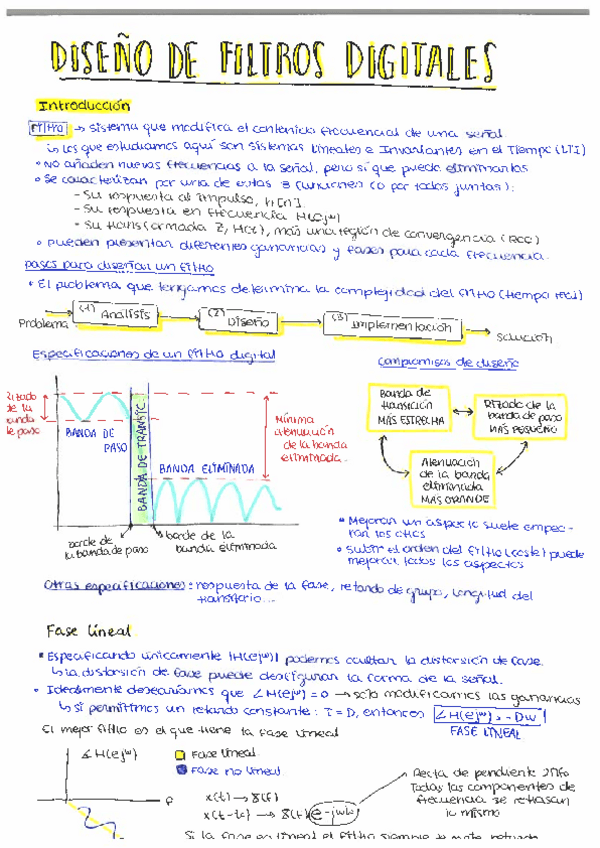 DISEÑO DE FILTROS DIGITALES
Introducción
Filtro → Sistema que modifica el contenido frecuencial de una señal.
↳ Los que estudiamos aquí son Sistemas Lineales e Invariantes en el Tiempo (LTI)
• No añaden nuevas frecuencias a la señal, pero sí que puede eliminarlas
• Se caracterizan por una de estas 3 funciones (o por todas juntas):
- Su respuesta al impulso, h[n].
- Su respuesta en frecuencia H(ejω)
- Su transformada Z, H(z), más una región de convergencia (ROC)
• pueden presentar diferentes ganancias y fases para cada frecuencia.
pasos para diseñar un filtro
• El problema que tengamos determina la complejidad del filtro (tiempo real)
Problema
(1) Análisis
(2) Diseño
(3) Implementación
Solución
Especificaciones de un filtro digital
Compromisos de diseño
Rizado
de la
banda
de paso
BANDA DE
PASO
BANDA DE TRANSIC.
BANDA ELIMINADA
Mínima
atenuación
de la banda
eliminada.
borde de
la banda de paso
borde de la
banda eliminada
Banda de
transición
MÁS ESTRECHA
Rizado de la
banda de paso
MÁS PEQUEÑO
Atenuación
de la banda
eliminada
MÁS GRANDE
• Mejorar un aspecto suele empeo-
rar los otros
• Subir el orden del filtro (coste) puede
mejorar todos los aspectos
Otras especificaciones: respuesta de la fase, retardo de grupo, longitud del
transitorio...
Fase lineal.
• Especificando únicamente |H(ejω)| podemos ocultar la distorsión de fase.
↳ la distorsión de fase puede desfigurar la forma de la señal.
• Idealmente desearíamos que ∡H(ejω) = 0 → sólo modificamos las ganancias
↳ si permitimos un retardo constante: τ = D, entonces ∡H(ejω) = -Dω
FASE LINEAL
El mejor filtro es el que tiene la fase lineal
∡H(ejω)
Fase lineal.
Fase no lineal
x(t) → X(f)
x(t-to) → X(f)
Recta de pendiente
Todas las componentes de
frecuencia se retrasan
lo mismo
Si la fase es lineal el filtro siempre